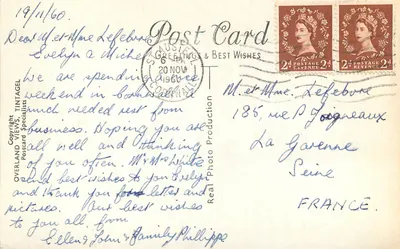 19/11/60.
Dear M. et Mme. Lefebvre
Evelyn & Michel
We are spending
weekend in Cornwall
much needed rest from
business. Hoping you are
all well and thinking
of you often. Mr Mrs White
send best wishes to you Evelyn
and thank you for letter and
pictures. Our best wishes
to you all, from
Ellen & John & Family Phillipps
Copyright
OVERLAND VIEWS, TINTAGEL
Postcard Specialists
Post Card
GREETINGS & BEST WISHES
ST. AUSTELL
20 NOV
1960
CORNWALL
Real Photo Production
2d POSTAGE REVENUE 2d
2d POSTAGE REVENUE 2d
M. et Mme. Lefebvre
185, rue P
La Garenne
Seine
FRANCE.